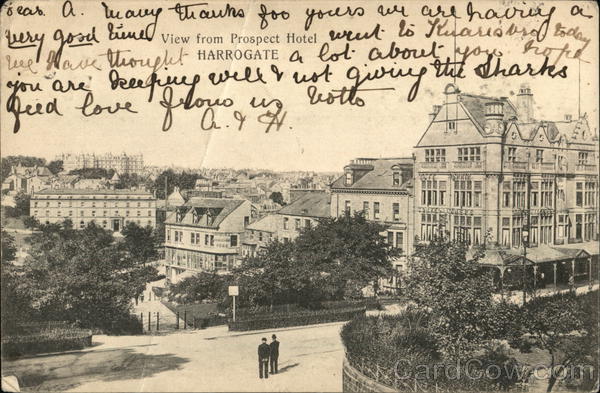 Dear A. Many thanks for yours we are having a
very good time went to Knaresbro today
View from Prospect Hotel
HARROGATE
we have thought a lot about you hope
you are keeping well & not giving the Sharks
feed love from us both
A. & H.
CardCow.com